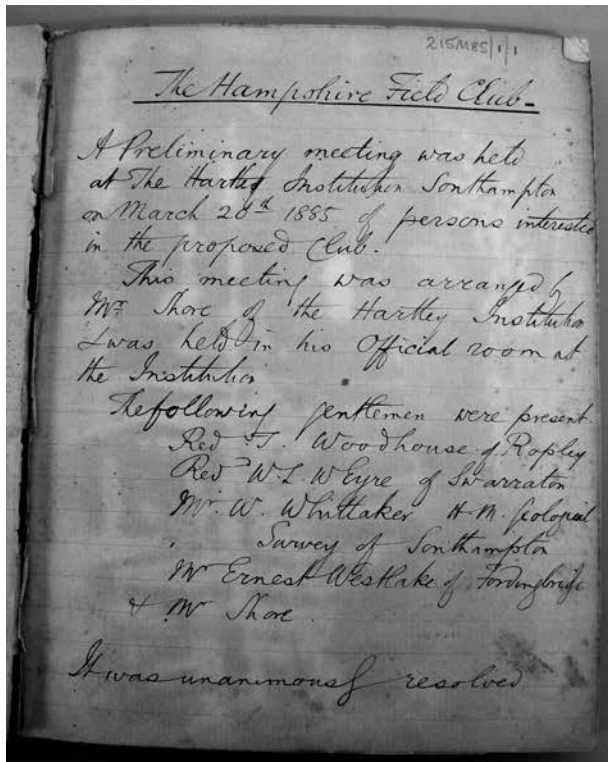 215M85/1/1
The Hampshire Field Club-
A Preliminary meeting was held
at The Hartley Institution Southampton
on March 20th 1885 of persons interested
in the proposed Club.
This meeting was arranged by
Mr. Shore of the Hartley Institution
& was held in his Official room at
the Institution
The following gentlemen were present.
Revd T. Woodhouse of Ropley
Revd W. L. W Eyre of Swarraton
Mr. W. Whittaker H. M. Geological
Survey of Southampton
Mr Ernest Westlake of Fordingbridge
& Mr Shore.
It was unanimously resolved